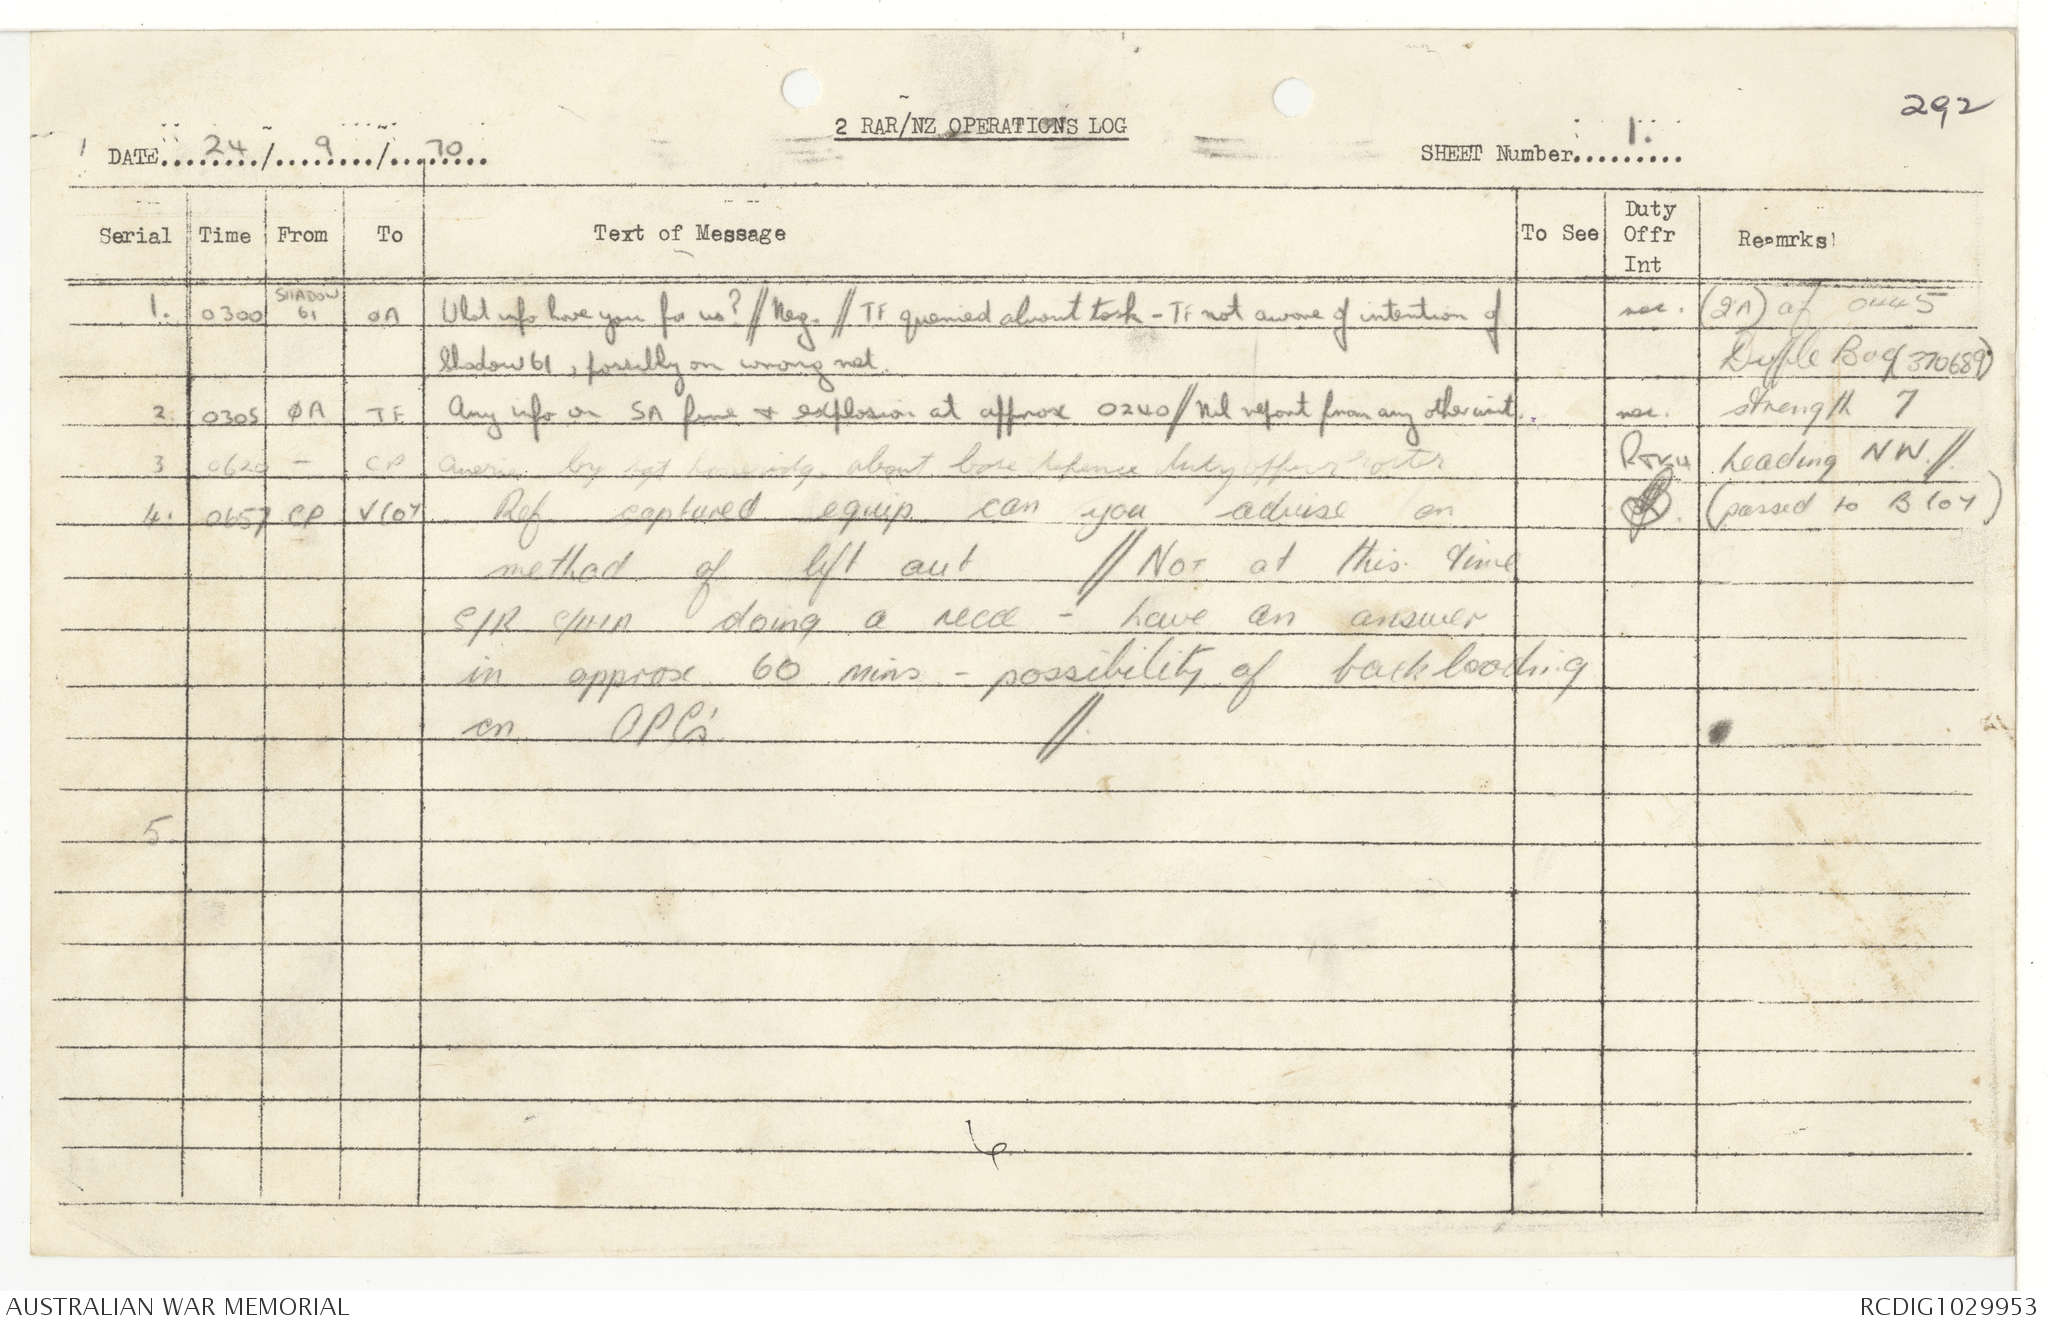 292
2 RAR/NZ OPERATIONS LOG
DATE........24/........9/....70......
SHEET Number....1.....
Serial Time From To Text of Message To See Duty Offr Int Remrks
1. 0300 SHADOW 61 0A What info have you for us? // Neg. // TF queried about task - TF not aware of intention of (2A) at 0445
Shadow 61, possibly on wrong net. Duffle Bag (370689)
2. 0305 0A TF Any info on SA fire & explosion at approx 0240 // Nil report from any other unit. strength 7
3 0620 - CP by sgt about base defence duty officer roster heading NW //
4. 0657 CP V Coy Ref captured equip can you advise on (passed to B Coy)
method of lift out // Not at this time
C/S doing a recce - have an answer
in approx 60 mins - possibility of backloading
on APC's //
5
AUSTRALIAN WAR MEMORIAL RCDIG1029953